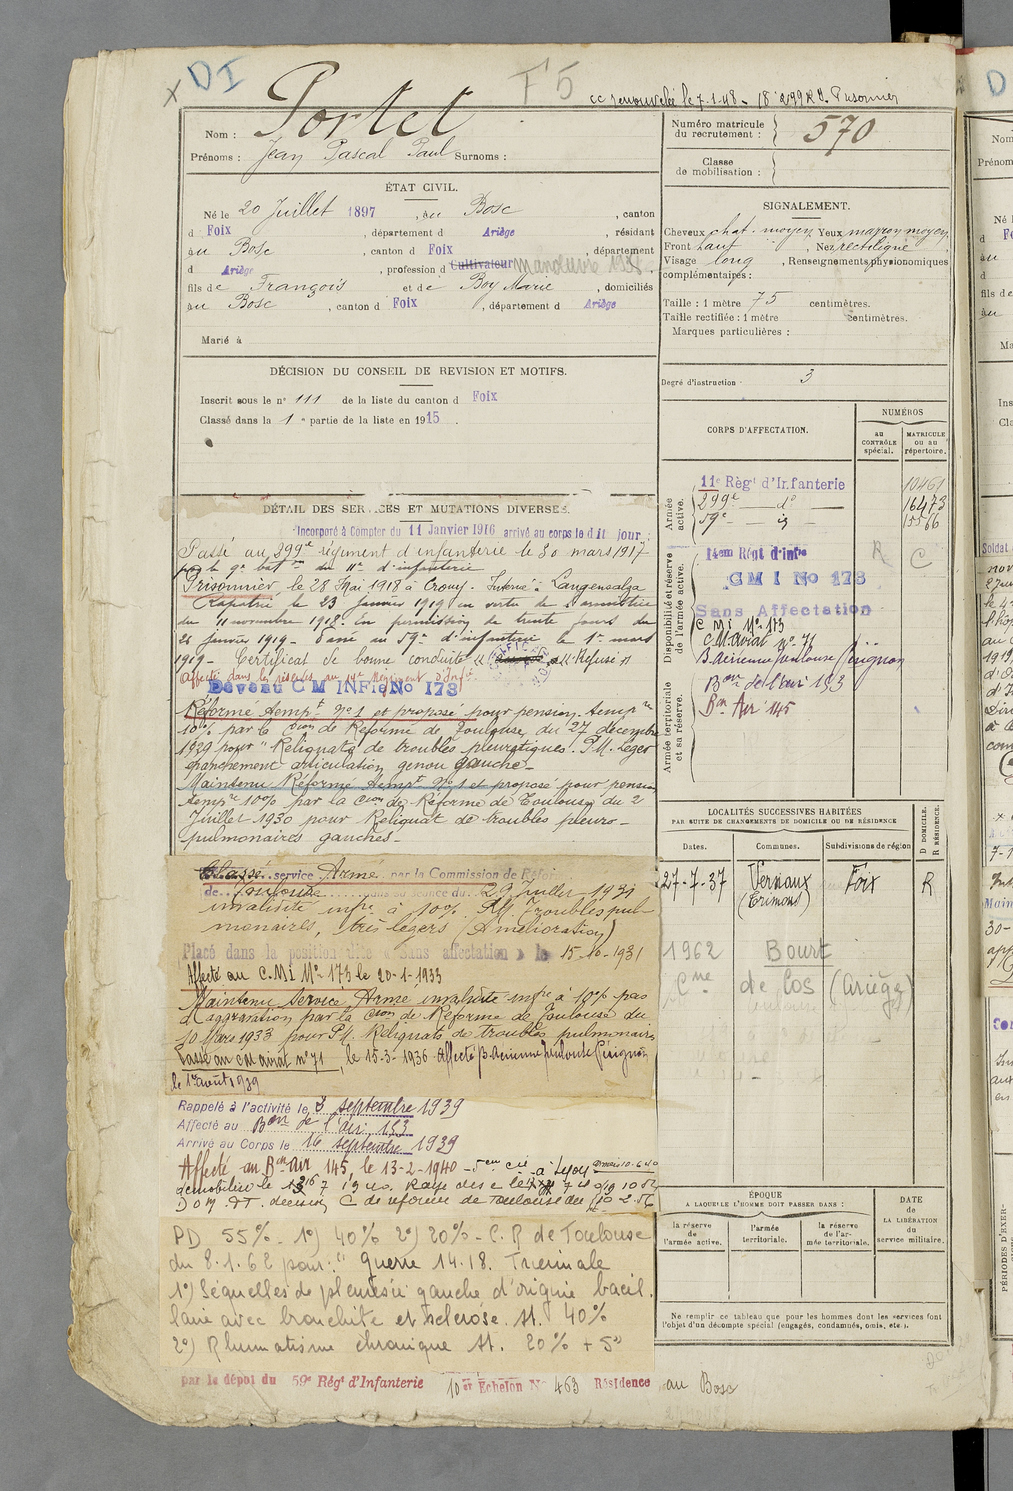 DI
F 5
cc renouvelée le 7.1.48 - 18 299 R.I. Prisonnier
Nom : Portet
Prénoms : Jean Pascal Paul Surnoms :
Numéro matricule du recrutement : 570
Classe de mobilisation :
ÉTAT CIVIL.
Né le 20 Juillet 1897, au Bosc, canton
d Foix, département d Ariège, résidant
au Bosc, canton d Foix, département
d Ariège, profession d Cultivateur manoeuvre
fils de François et de Boy Marie, domiciliés
au Bosc, canton d Foix, département d Ariège
Marié à
SIGNALEMENT.
Cheveux chat. moyen Yeux marron moyen
Front haut, Nez rectiligne
Visage long, Renseignements physionomiques
complémentaires :
Taille : 1 mètre 75 centimètres.
Taille rectifiée : 1 mètre centimètres.
Marques particulières :
Degré d'instruction : 3
DÉCISION DU CONSEIL DE REVISION ET MOTIFS.
Inscrit sous le n° 111 de la liste du canton d Foix
Classé dans la 1e partie de la liste en 1915.
DÉTAIL DES SERVICES ET MUTATIONS DIVERSES.
Incorporé à Compter du 11 Janvier 1916 arrivé au corps le dit jour.
Passé au 299e régiment d'infanterie le 30 mars 1917
9e baton du 11e d'infanterie
Prisonnier le 28 Mai 1918 à Crouy. Interné : Langensalza
Rapatrié le 23 janvier 1919 en vertu de l'armistice
du 11 novembre 1918. En permission de trente jours du
janvier 1919. Passé au 59e d'infanterie le 1er mars
1919 - Certificat de bonne conduite « Refusé »
Affecté dans la réserve au 14e Régiment d'Infie
Devenu C M INFie No 173
Réformé tempt no 1 et proposé pour pension tempre
10% par la Cion de Réforme de Toulouse du 27 décembre
1929 pour "Reliquats de troubles pleurétiques. P.M. Léger
épanchement articulation genou gauche -
Maintenu Réformé tempt no 1 et proposé pour pension
tempre 10% par la Cion de Réforme de Toulouse du 2
Juillet 1930 pour Reliquat de troubles pleuro-
pulmonaires gauches -
Classé service Armé par la Commission de Réforme
de Toulouse dans sa séance du 29 Juillet 1931
invalidité infre à 10% P.M. Troubles pul-
monaires, très légers (Amélioration)
Placé dans la position dite « Sans affectation » le 15-10-1931
Affecté au C.M.i No 173 le 20-1-1933
Maintenu Service Armé invalidité infre à 10% pas
d'aggravation par la Cion de Réforme de Toulouse du
10 Mars 1933 pour P.M. Reliquats de troubles pulmonaires
Passé au CM aviat no 71, le 15-3-1936 Affecté B. Aérienne Toulouse Pérignon
le 1er août 1939
Rappelé à l'activité le 3 septembre 1939
Affecté au Bon de l'air 153
Arrivé au Corps le 16 septembre 1939
Affecté au Bon air 145, le 13-2-1940 - 5em cie à Lyon
démobilisé le
C de réforme de Toulouse du
PD 55% - 1°) 40% 2°) 20% - C.R de Toulouse
du 8.1.62 pour : "Guerre 14.18. Triennale
1°) Séquelles de pleurésie gauche d'origine bacil.
laire avec bronchite et sclérose. St. 40%
2°) Rhumatisme chronique St. 20% + 5"
par le dépôt du 59e Régt d'Infanterie 10er Echelon No 463 Résidence au Bosc
CORPS D'AFFECTATION.
NUMÉROS
AU CONTRÔLE spécial.
MATRICULE ou au répertoire.
Armée active.
11e Régt d'Infanterie 10461
299e - do 16473
59e - 15566
Disponibilité et réserve de l'armée active.
14em Régt d'Infie
C M I No 173
Sans Affectation
R
C
C Mi No 173
CM. aviat no 71
B. Aérienne Toulouse Pérignon
Armée territoriale et sa réserve.
Bon de l'air 153
Bon Air 145
LOCALITÉS SUCCESSIVES HABITÉES
PAR SUITE DE CHANGEMENTS DE DOMICILE OU DE RÉSIDENCE
Dates. Communes. Subdivisions de région D DOMICILE. R RÉSIDENCE.
27-7-37 Vernaux Foix R
1962 Bourt
Cne de Cos (Ariège)
ÉPOQUE
A LAQUELLE L'HOMME DOIT PASSER DANS :
la réserve de l'armée active.
l'armée territoriale.
la réserve de l'armée territoriale.
DATE de LA LIBÉRATION du service militaire.
Ne remplir ce tableau que pour les hommes dont les services font
l'objet d'un décompte spécial (engagés, condamnés, omis, etc.).
PÉRIODES D'EXER-